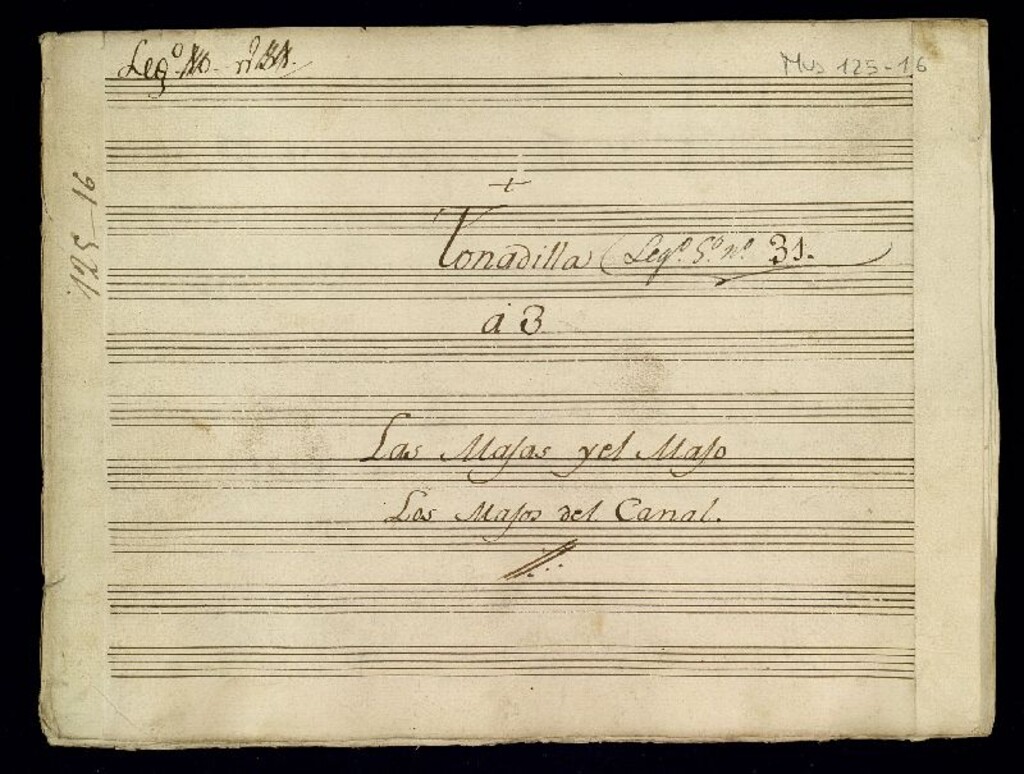 Leg.º nº
Mus 125-16
125-16
+
Tonadilla (Legº. 5º. nº. 31.
a 3
Las Majas y el Majo
Los Majos del Canal.